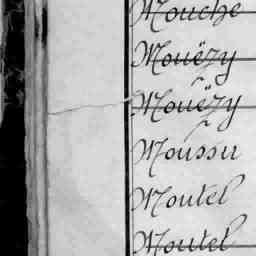 Mouche
Mouëzy
Mouëzy
Moussu
Moutel
Moutel